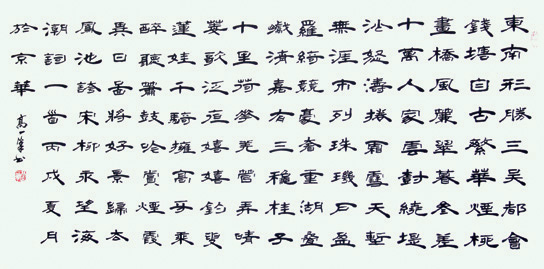 東南形勝三吳都會
錢塘自古繁華煙柳
畫橋風簾翠幕參差
十萬人家雲樹繞堤
沙怒濤捲霜雪天塹
無涯市列珠璣戶盈
羅綺競豪奢重湖疊
巘清嘉有三穐桂子
十里荷花羌管弄晴
菱歌泛夜嬉嬉釣叟
蓮娃千騎擁高牙乘
醉聽簫鼓吟賞煙霞
異日圖將好景歸去
鳳池誇宋柳永望海
潮詞一首丙戌夏月
於京華